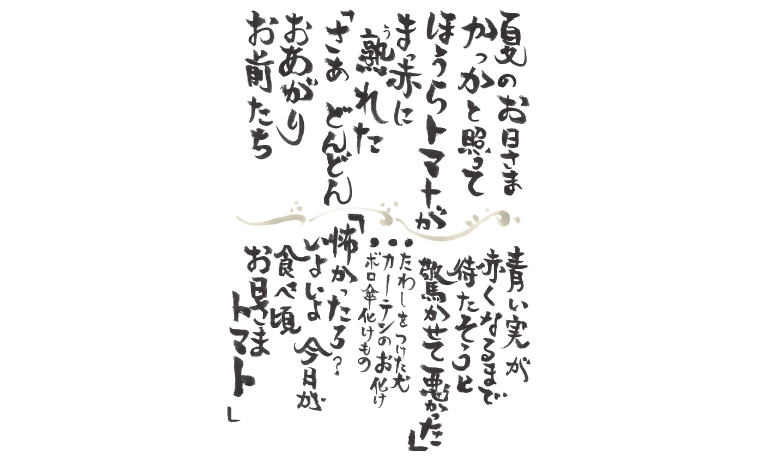 夏のお日さま
かっかと照って
ほうらトマトが
まっ赤に
熟れた
う
「さあ どんどん
おあがり
お前たち
青い実が
赤くなるまで
待たそうと
驚かせて悪かった」
・・・
たわしをつけた犬
カーテンのお化け
ボロ傘化けもの
「怖かったろ?
いよいよ 今日が
食べ頃
お日さま
トマト」